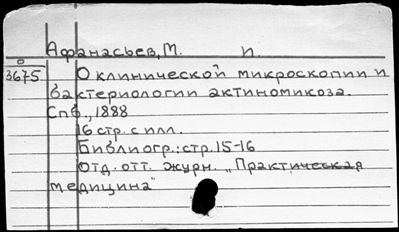 Афанасьев, М. И.
О
3675 О клинической микроскопии и
бактериологии актиномикоза.
Спб., 1888
16 стр. с илл.
Библиогр.: стр. 15-16
Отд. отт. журн. „Практическая
медицина"